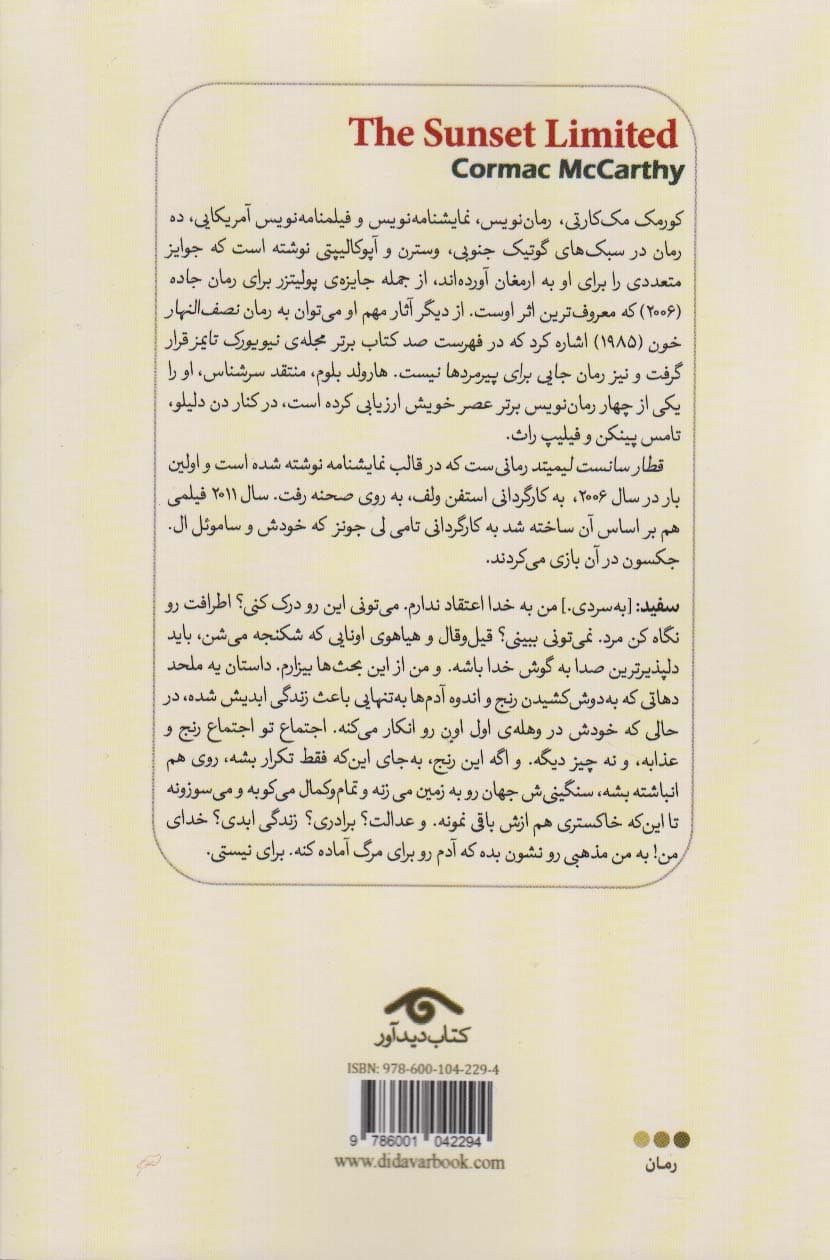 The Sunset Limited
Cormac McCarthy
کورمک مک‌کارتی، رمان‌نویس، نمایشنامه‌نویس و فیلمنامه‌نویس آمریکایی، ده
رمان در سبک‌های گوتیک جنوبی، وسترن و آپوکالیپتی نوشته است که جوایز
متعددی را برای او به ارمغان آورده‌اند، از جمله جایزه‌ی پولیتزر برای رمان جاده
(۲۰۰۶) که معروف‌ترین اثر اوست. از دیگر آثار مهم او می‌توان به رمان نصف‌النهار
خون (۱۹۸۵) اشاره کرد که در فهرست صد کتاب برتر مجله‌ی نیویورک تایمز قرار
گرفت و نیز رمان جایی برای پیرمردها نیست. هارولد بلوم، منتقد سرشناس، او را
یکی از چهار رمان‌نویس برتر عصر خویش ارزیابی کرده است، در کنار دن دلیلو،
تامس پینکن و فیلیپ راث.
قطار سانست لیمیتد رمانی‌ست که در قالب نمایشنامه نوشته شده است و اولین
بار در سال ۲۰۰۶، به کارگردانی استفن ولف، به روی صحنه رفت. سال ۲۰۱۱ فیلمی
هم بر اساس آن ساخته شد به کارگردانی تامی لی جونز که خودش و ساموئل ال.
جکسون در آن بازی می‌کردند.
سفید: [به‌سردی.] من به خدا اعتقاد ندارم. می‌تونی این رو درک کنی؟ اطرافت رو
نگاه کن مرد. نمی‌تونی ببینی؟ قیل‌وقال و هیاهوی اونایی که شکنجه می‌شن، باید
دلپذیرترین صدا به گوش خدا باشه. و من از این بحث‌ها بیزارم. داستان یه ملحد
دهاتی که به‌دوش‌کشیدن رنج و اندوه آدم‌ها به‌تنهایی باعث زندگی ابدیش شده، در
حالی که خودش در وهله‌ی اول اون رو انکار می‌کنه. اجتماع تو اجتماع رنج و
عذابه، و نه چیز دیگه. و اگه این رنج، به‌جای این‌که فقط تکرار بشه، روی هم
انباشته بشه، سنگینی‌ش جهان رو به زمین می زنه و تمام‌وکمال می‌کوبه و می‌سوزونه
تا این‌که خاکستری هم ازش باقی نمونه. و عدالت؟ برادری؟ زندگی ابدی؟ خدای
من! به من مذهبی رو نشون بده که آدم رو برای مرگ آماده کنه. برای نیستی.
کتاب دیدآور
ISBN: 978-600-104-229-4
9 786001 042294
www.didavarbook.com
رمان